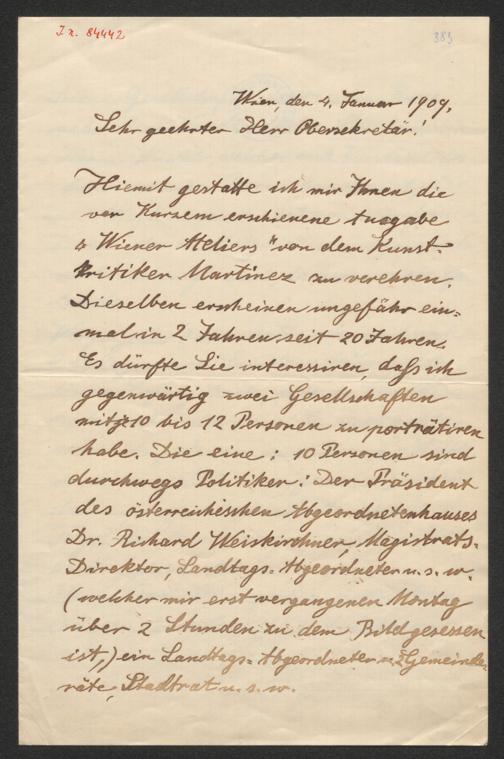 I.N. 84442
383
Wien, den 4. Januar 1909.
Sehr geehrter Herr Obersekretär!
Hiemit gestatte ich mir Ihnen die
vor Kurzem erschienene Ausgabe
„Wiener Ateliers" von dem Kunst-
kritiker Martinez zu verehren.
Dieselben erscheinen ungefähr ein-
mal in 2 Jahren seit 20 Jahren.
Es dürfte Sie interessiren, daß ich
gegenwärtig zwei Gesellschaften
mit je 10 bis 12 Personen zu porträtiren
habe. Die eine: 10 Personen sind
durchwegs Politiker: Der Präsident
des österreichischen Abgeordnetenhauses
Dr. Richard Weiskirchner, Magistrats-
Direktor, Landtags-Abgeordneter u. s. w.
(welcher mir erst vergangenen Montag
über 2 Stunden zu dem Bild gesessen
ist,) ein Landtags-Abgeordneter Gemeinde-
räte, Stadtrat u. s. w.